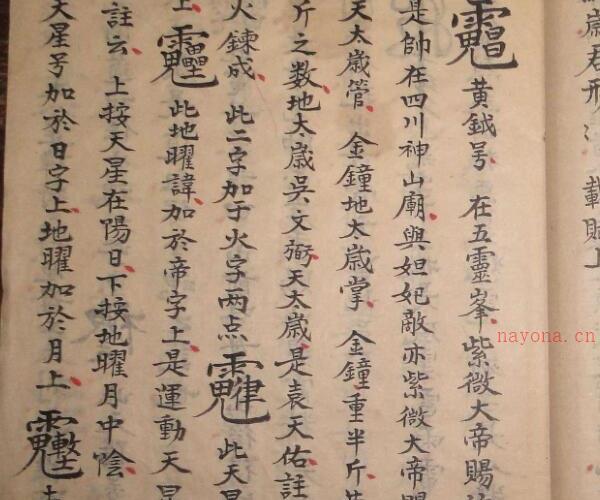 歲君形 載賦上
黃鉞号 在五靈峯紫微大帝賜
是帥在四川神山廟與妲妃敵亦紫微大帝賜
天太歲管 金鐘地太歲掌 金鐘重半斤
斤之数地太歲吳文弼天太歲是袁天佑註
火鍊成 此二字加于火字两点 此天星
上 此地曜諱加於帝字上是運動天星
註云 上按天星在陽日下按地曜月中陰
天星号加於日字上地曜加於月上
nayona.cn